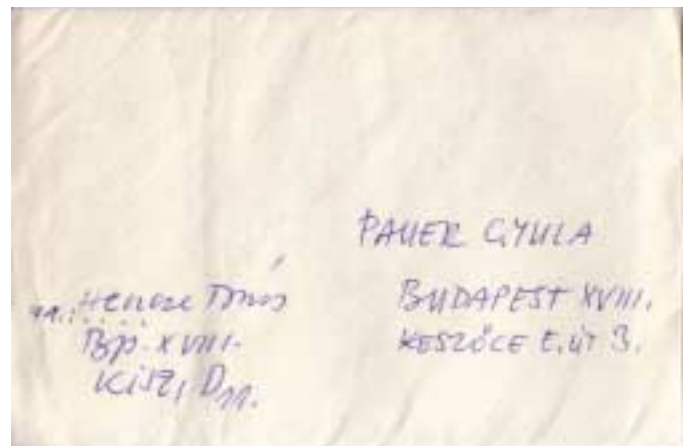 PAUER GYULA
BUDAPEST XVIII.
KESZŐCE E. ÚT 3.
Hencze Tamás
Bp. XVIII.